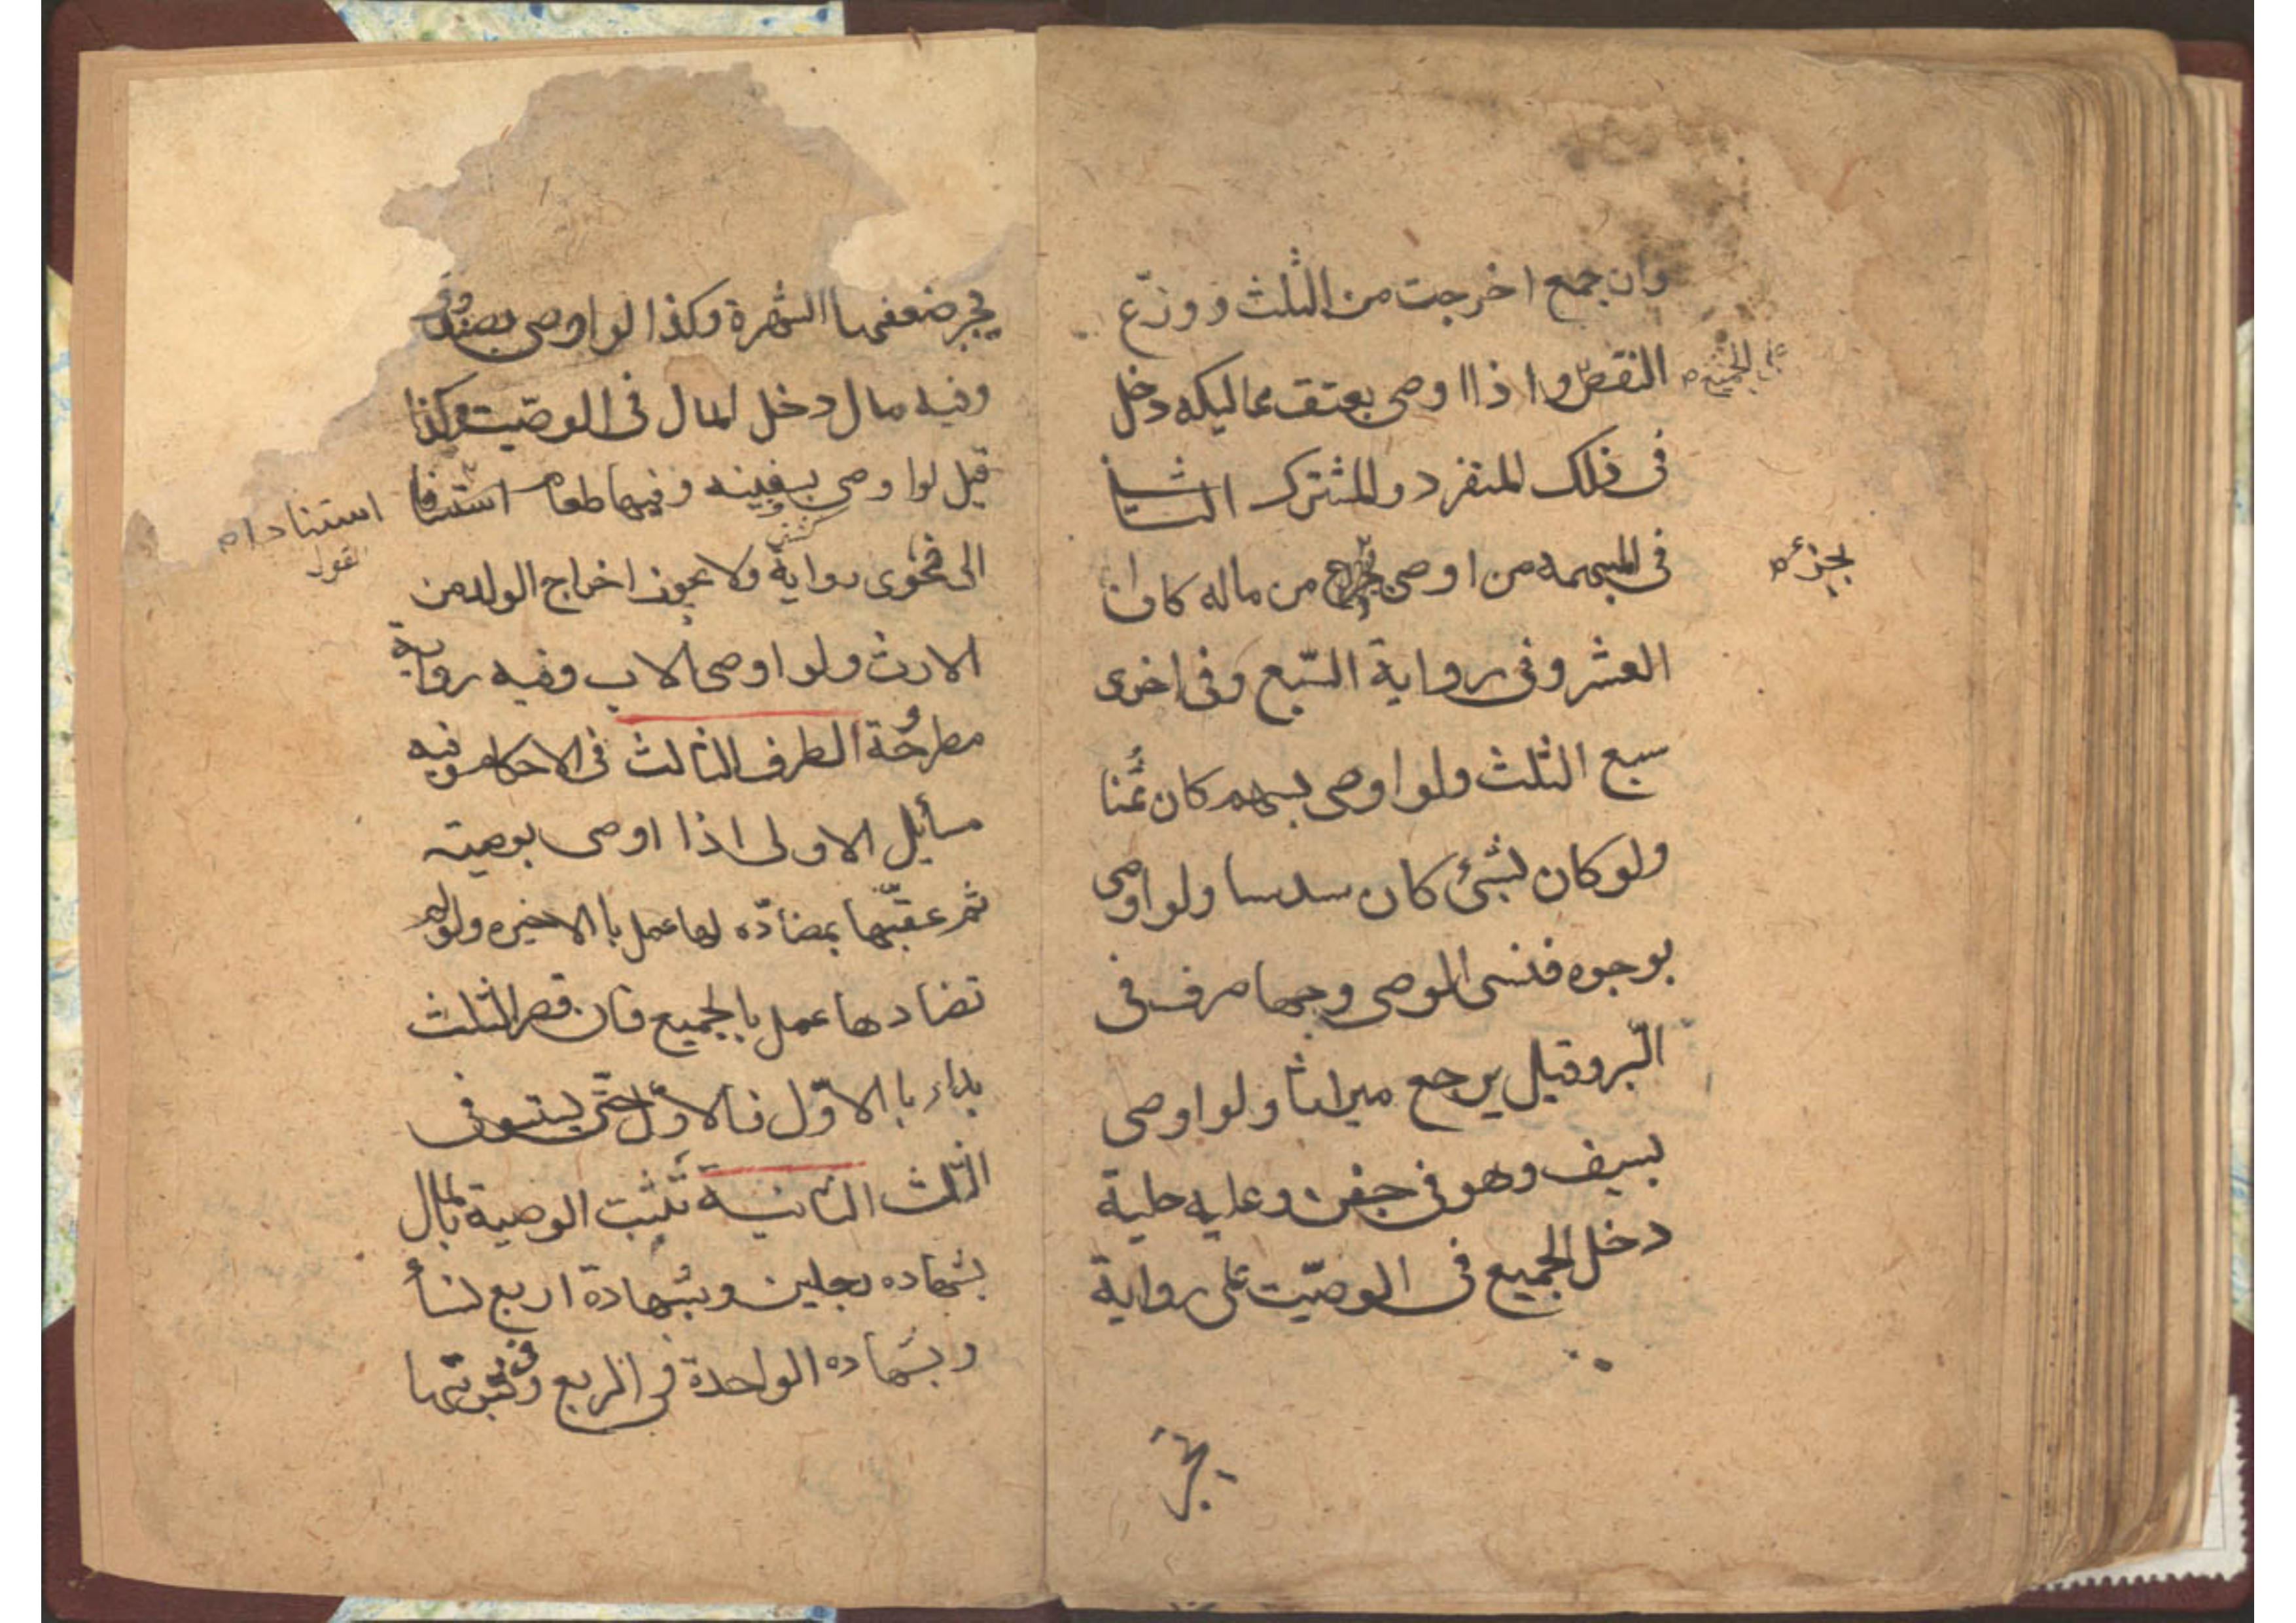 وان جمع اخرجت من الثلث ووزّع
النقص واذا اوصى بعتق مماليكه دخل
على الجميع
فى ذلك المنفرد والمشترك الثانية
فى المبهمه من اوصى من ماله كان
بجزء
العشر وفى رواية السّبع وفى اخرى
سبع الثلث ولو اوصى بسهم كان ثُمنا
ولو كان بشئ كان سدسا ولو اوصى
بوجوه فنسى الموصى وجها صرف فى
البّر وقيل يرجع ميراثا ولو اوصى
بسيف وهو فى جفن وعليه حلية
دخل الجميع فى الوصيّت على رواية
يجبر
يجبر ضعفها الشهرة وكذا لو اوصى بصندوق
وفيه مال دخل المال فى الوصيّت وكذا
قيل لو اوصى بسفينه وفيها طعام استنادا
استنادا
الى فحوى رواية ولا يجوز اخراج الولد من
الارث ولو اوصى الاب وفيه رواية
مطرحُة الطرف الثالث فى الاحكام وفيه
مسائل الاولى اذا اوصى بوصيته
ثم عقبّها بمضادّه لها عمل با الاخيره ولو لم
تضادها عمل بالجميع فان قصر الثلث
بداء با الاوّل فالاوّل حتى يستوفى
الثلث الثانية تثبت الوصية بالمال
بشهاده رجلين وبشهادة اربع نسأ
وبشهاده الواحدة فى الربع وفى ثبوتها